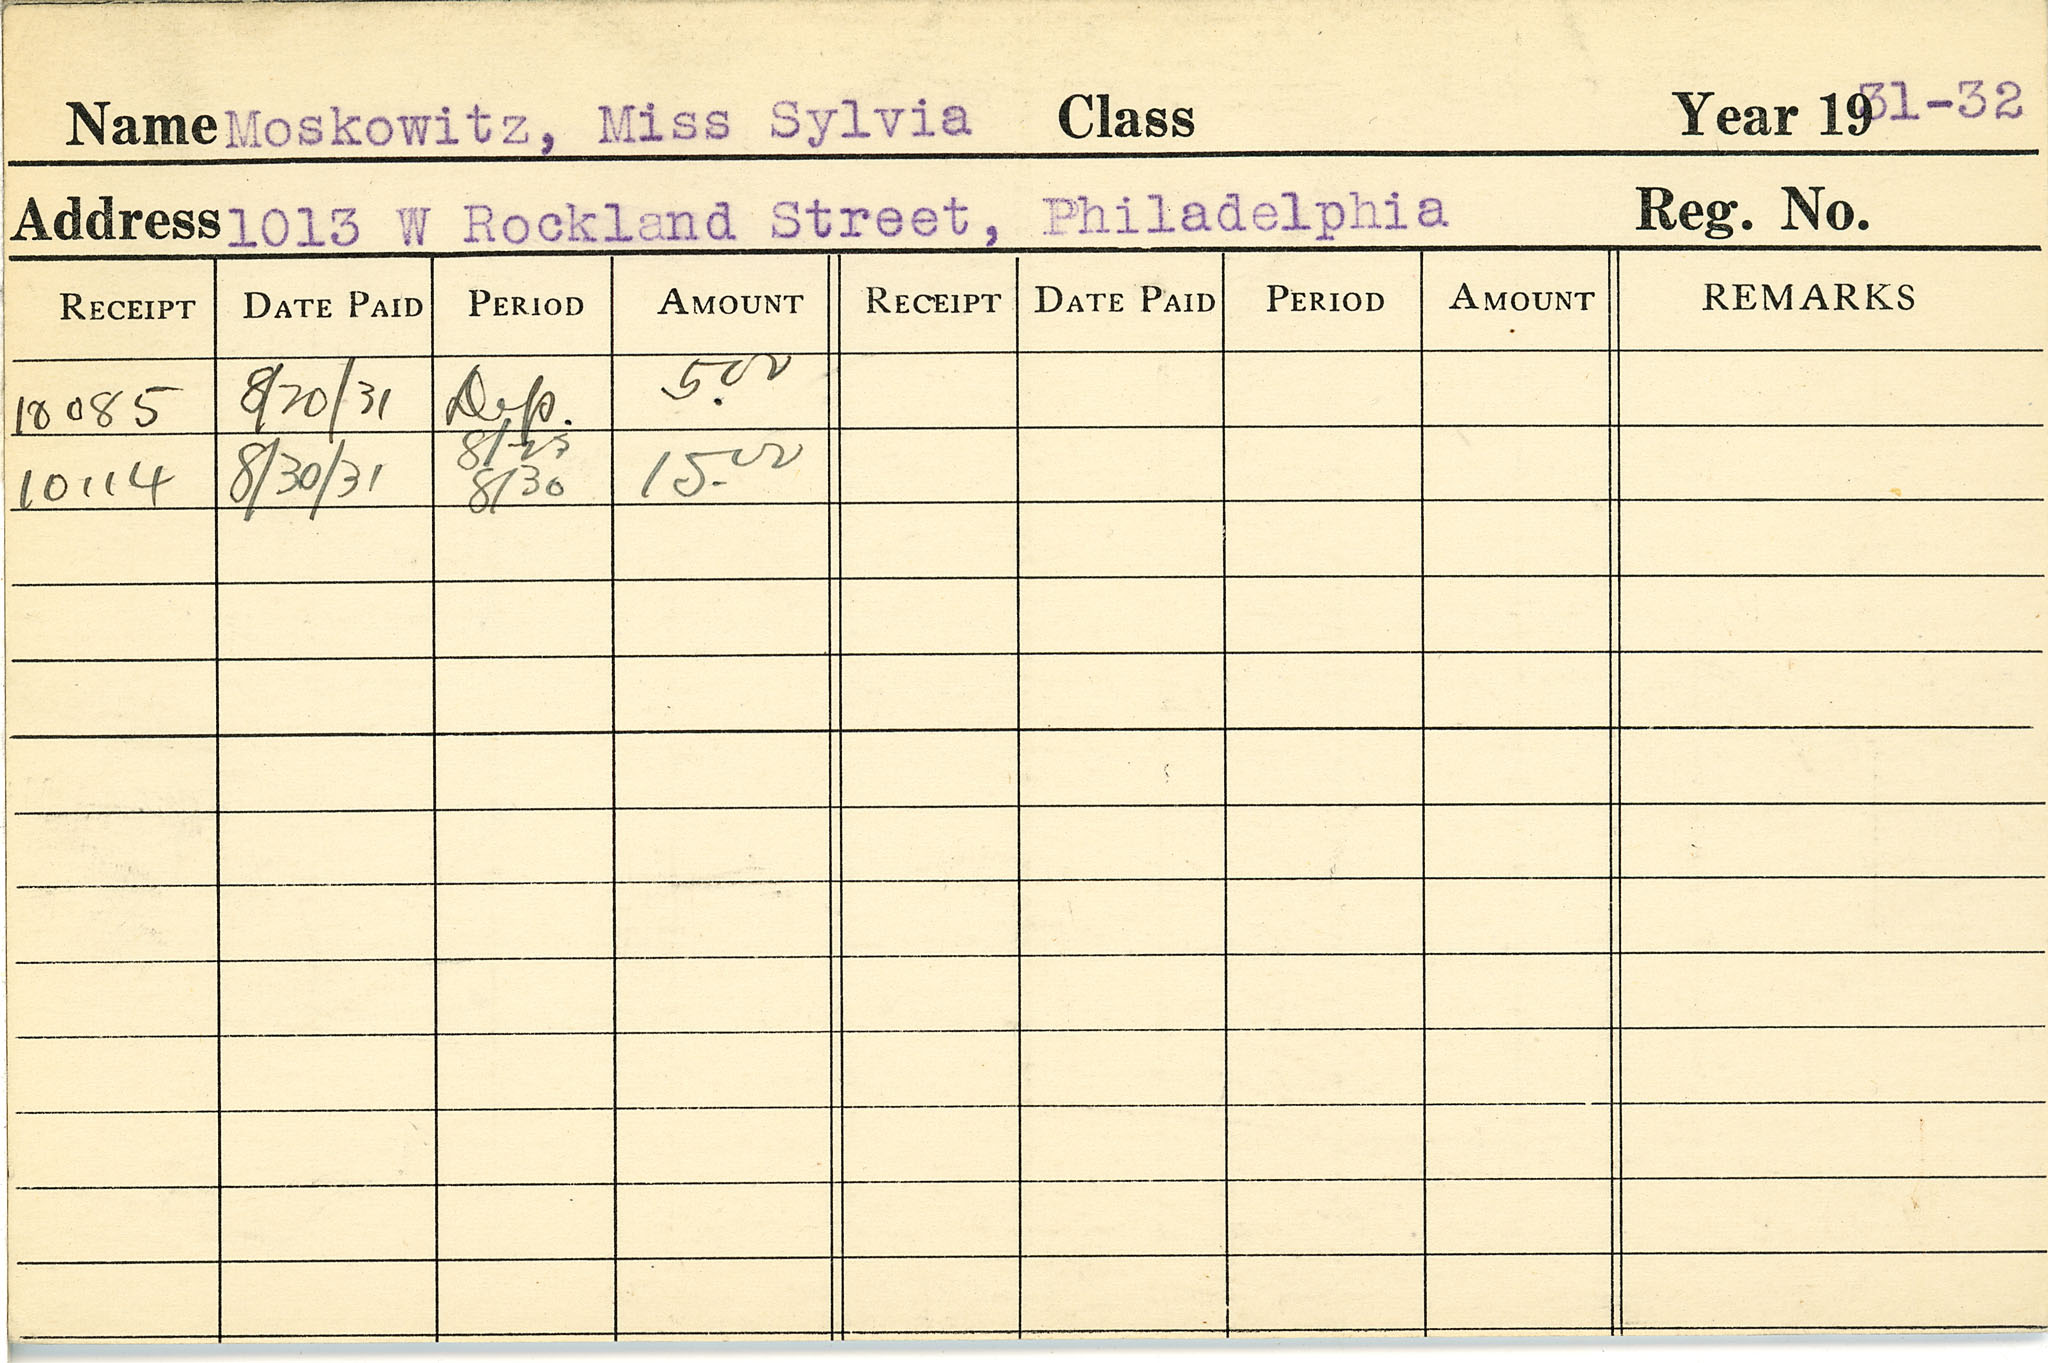 Name Moskowitz, Miss Sylvia Class Year 1931-32
Address 1013 W Rockland Street, Philadelphia Reg. No.
RECEIPT DATE PAID PERIOD AMOUNT RECEIPT DATE PAID PERIOD AMOUNT REMARKS
10085 8/20/31 Dep. 5.00
8/23
10114 8/30/31 8/30 15.00